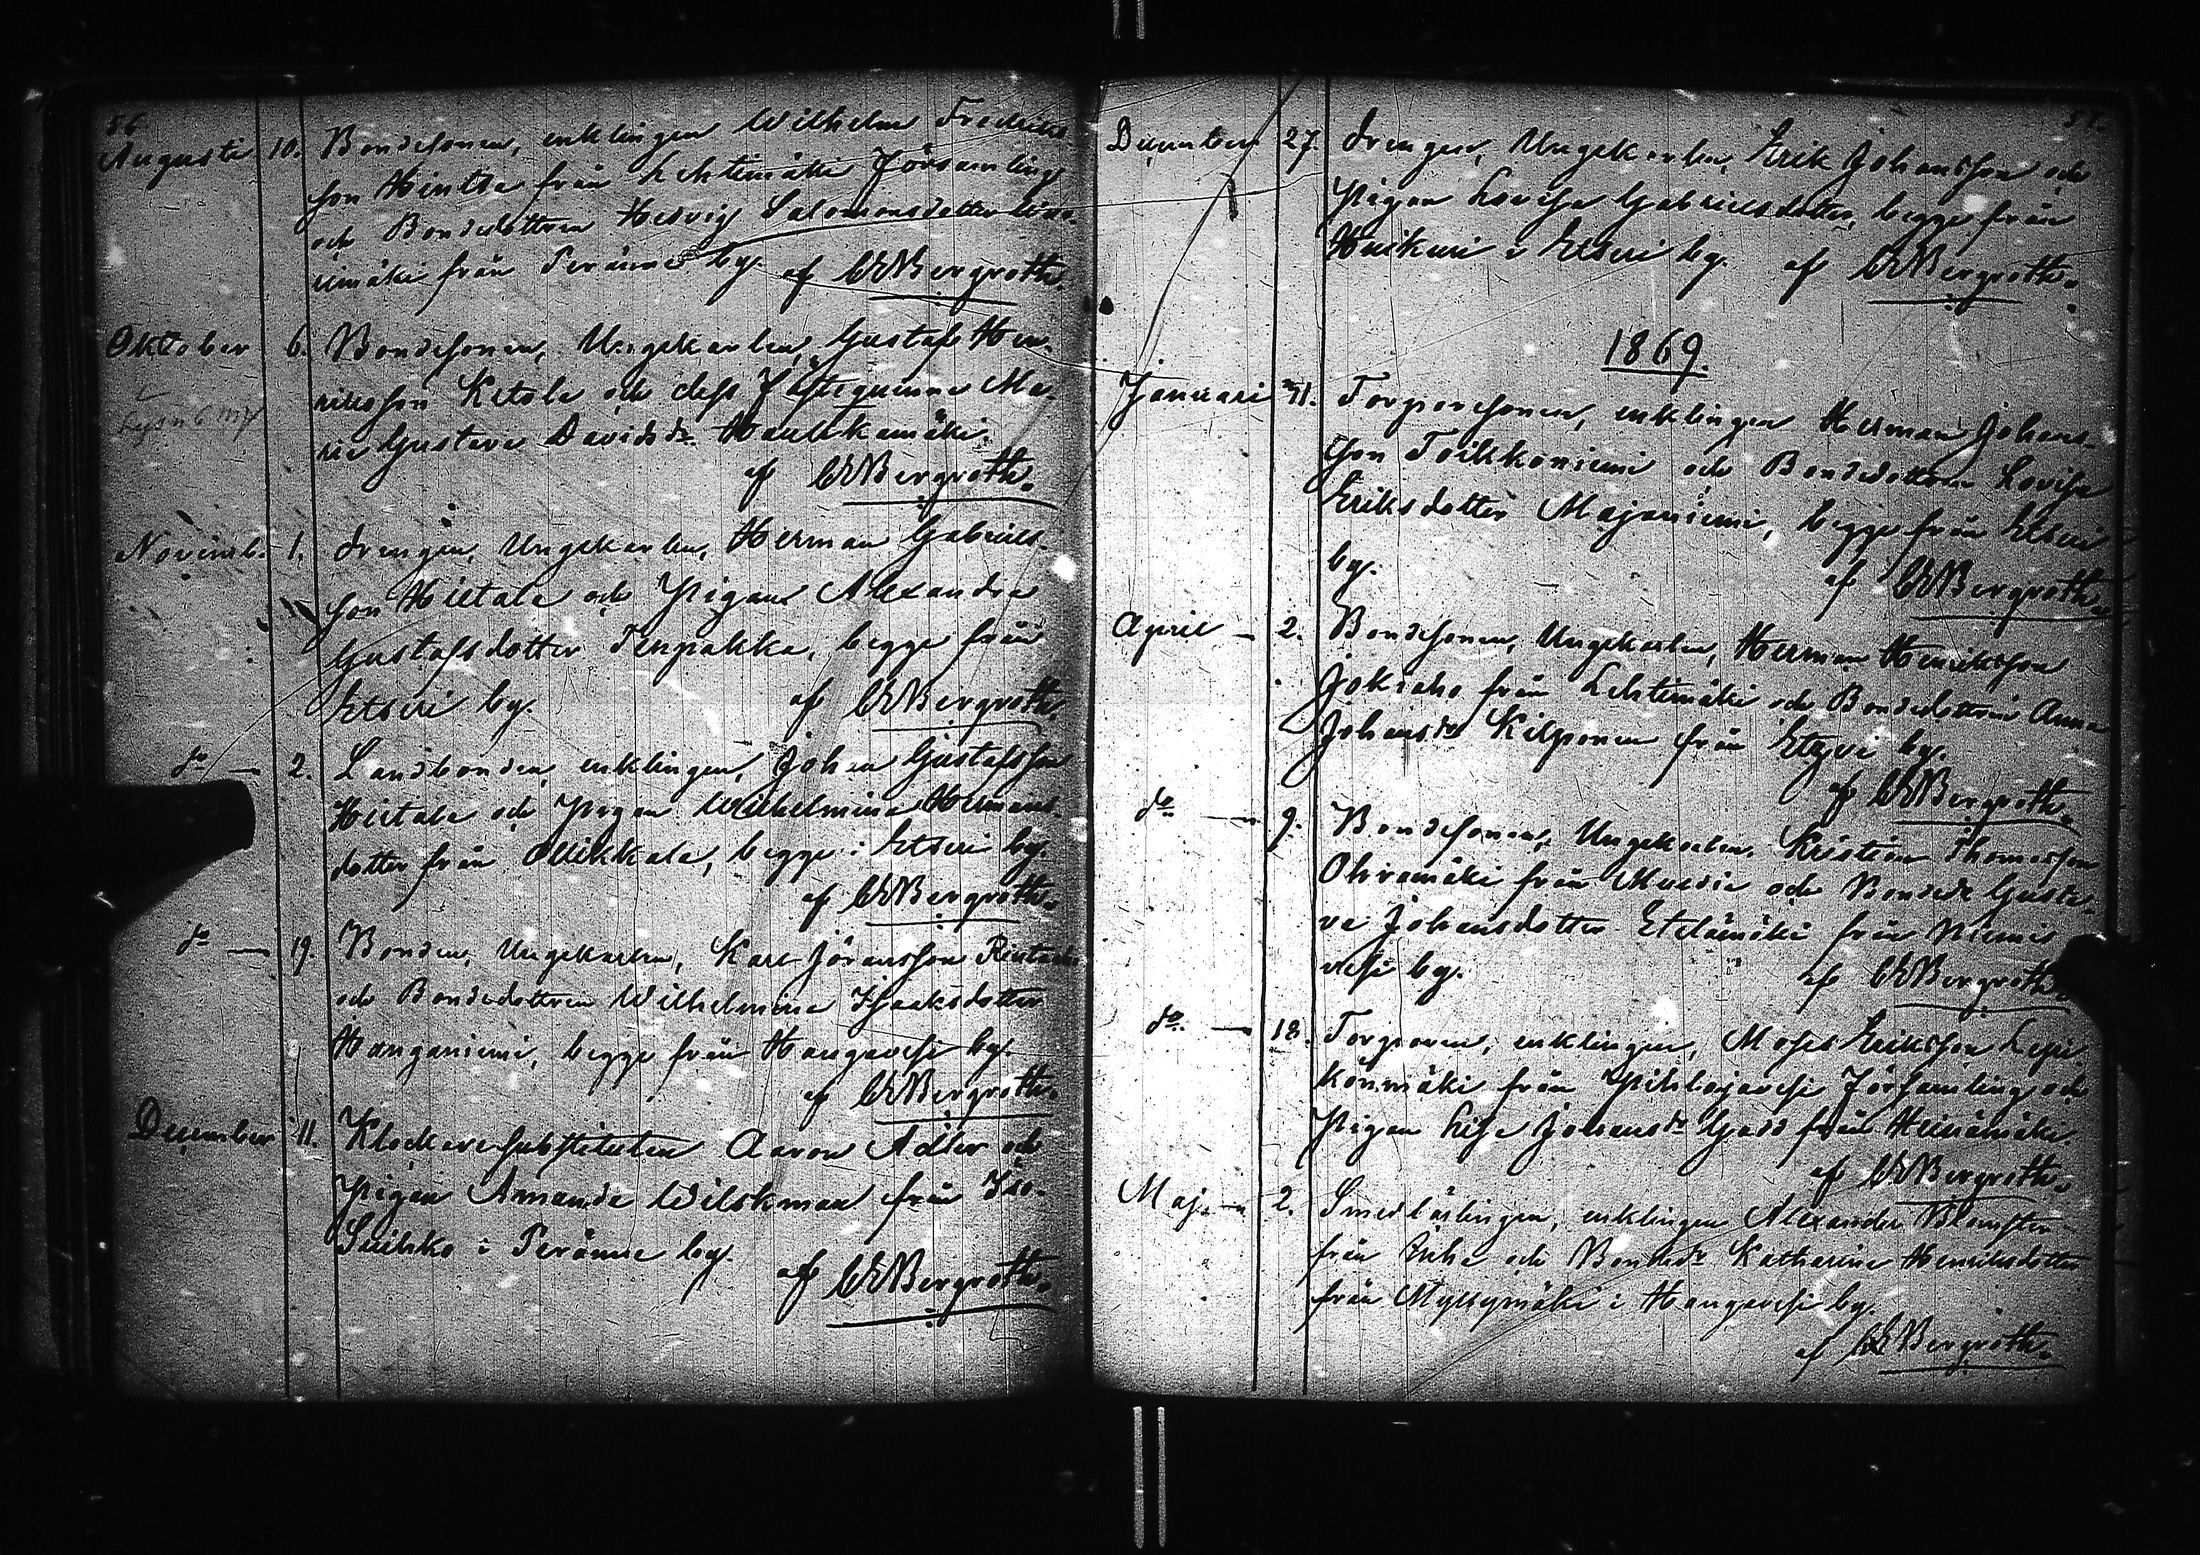 56.
Augusti 10. Bondesonen, enklingen Wilhelm Fredriks-
son Hintsa från Lehtimäki Församling
och Bondedottren Hedvig Salomonsdotter
från Peränne by. af CEBergroth.
Oktober 6. Bondesonen, Ungekarlen, Gustaf Hen-
riksson Ketola och dess Fästeqvinna Ma-
ria Gustava Davidsdr
af CEBergroth.
Novemb. 1. Drengen, Ungekarlen, Herman Gabriels-
son Hietala och Pigan Alexandra
Gustafsdotter Tenpakka, begge från
Etseri by. af CEBergroth.
do — 2. Landbonden, enklingen, Johan Gustafsson
Hietala och Pigan Wilhelmina Hermans-
dotter från Ollikkala, begge i Etseri by.
af CEBergroth.
do — 19. Bonden, Ungekarlen, Karl Jöransson
och Bondedottren Wilhelmina Isaaksdotter
Hanganiemi, begge från Hangavesi by.
af CEBergroth.
December 11. Klockaresubstituten Aaron Adler och
Pigan Amanda Wilskman från Iso-
Suihko i Peränne by.
af CEBergroth.
57.
December 27. Drengen, Ungekarlen, Erik Johansson och
Pigan Lovisa Gabrielsdotter, begge från
i Etseri by. af CEBergroth.
1869.
Januari 31. Torparesonen, enklingen Herman Johans-
son Toikkoniemi och Bondedottren Lovisa
Eriksdotter Majaniemi, begge från Etseri
by. af CEBergroth.
April — 2. Bondesonen, Ungekarlen, Herman Henriksson
Jokiaho från Lehtimäki och Bondedottren Anna
Johansdr Kilponen från by.
af CEBergroth.
do — 9. Bondesonen, Ungekarlen, Kristian Thomasson
Ohramäki från och Bondedr Gusta-
va Johansdotter Etelämäki från Niemis-
vesi by. af CEBergroth.
do. — 18. Torparen, enklingen, Moses Eriksson
från Pihlajavesi Församling och
Pigan Lisa Johansdr från
af CEBergroth.
Maj — 2. Smedlärlingen, enklingen Alexander
från och Bondedr Katharina Henriksdotter
från Myllymäki i Hangavesi by.
af CEBergroth.